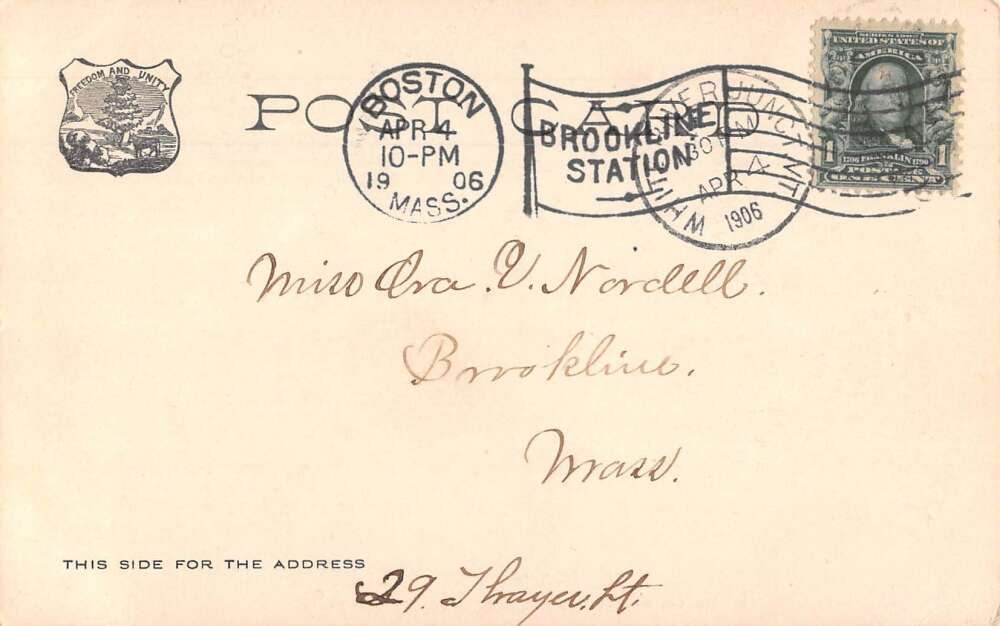 FREEDOM AND UNITY
POST CARD
BOSTON
APR 4
10-PM
19 06
MASS.
BROOKLINE
STATION
WHITE RIVER JUNC.
APR 4
1906
SERIES 1902
UNITED STATES OF
AMERICA
1706 FRANKLIN 1790
POSTAGE
1 ONE CENT
Miss Ora. V. Nordell.
Brookline.
Mass.
THIS SIDE FOR THE ADDRESS
29. Thayer. St.